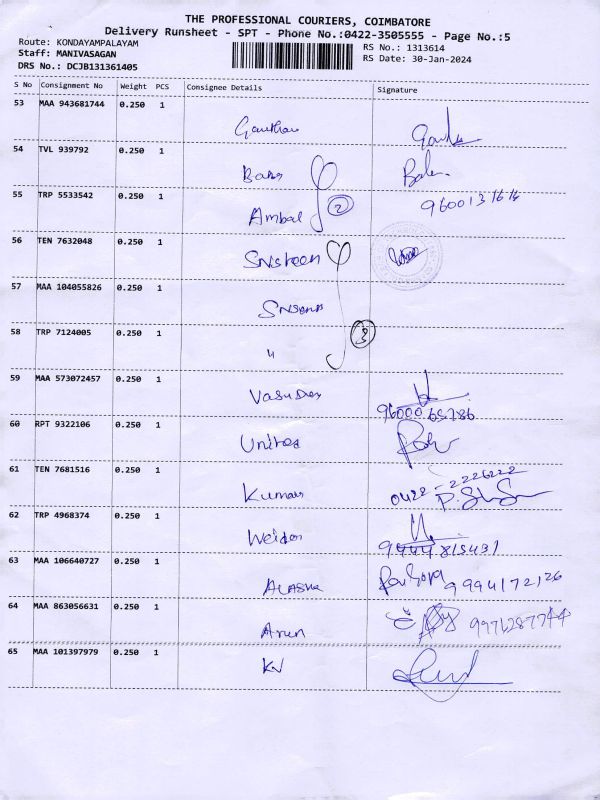 THE PROFESSIONAL COURIERS, COIMBATORE
Delivery Runsheet - SPT - Phone No.:0422-3505555 - Page No.:5
Route: KONDAYAMPALAYAM
RS No.: 1313614
Staff: MANIVASAGAN
RS Date: 30-Jan-2024
DRS No.: DCJB131361405
S No Consignment No Weight PCS Consignee Details Signature
53 MAA 943681744 0.250 1
54 TVL 939792 0.250 1
55 TRP 5533542 0.250 1 Ambal 2
56 TEN 7632048 0.250 1
57 MAA 104055826 0.250 1
58 TRP 7124005 0.250 1 " 3
59 MAA 573072457 0.250 1 Vasudev
96000 65786
60 RPT 9322106 0.250 1 United
61 TEN 7681516 0.250 1 Kumar 0422-2226222
62 TRP 4968374 0.250 1
9444815431
63 MAA 106640727 0.250 1 9994172126
64 MAA 863056631 0.250 1 Arun 9971287744
65 MAA 101397979 0.250 1 KV